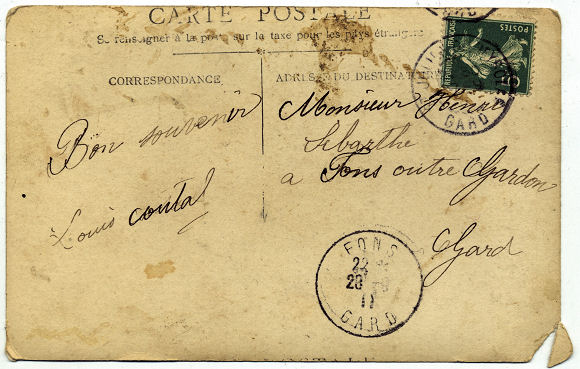 CARTE POSTALE
Se renseigner à la poste sur la taxe pour les pays étrangers
CORRESPONDANCE
ADRESSE DU DESTINATAIRE
Bon souvenir
Louis coutal
Monsieur Henri
Sebarthe
a Fons outre Gardon
Gard
POSTES
GARD
FONS
28
11
GARD